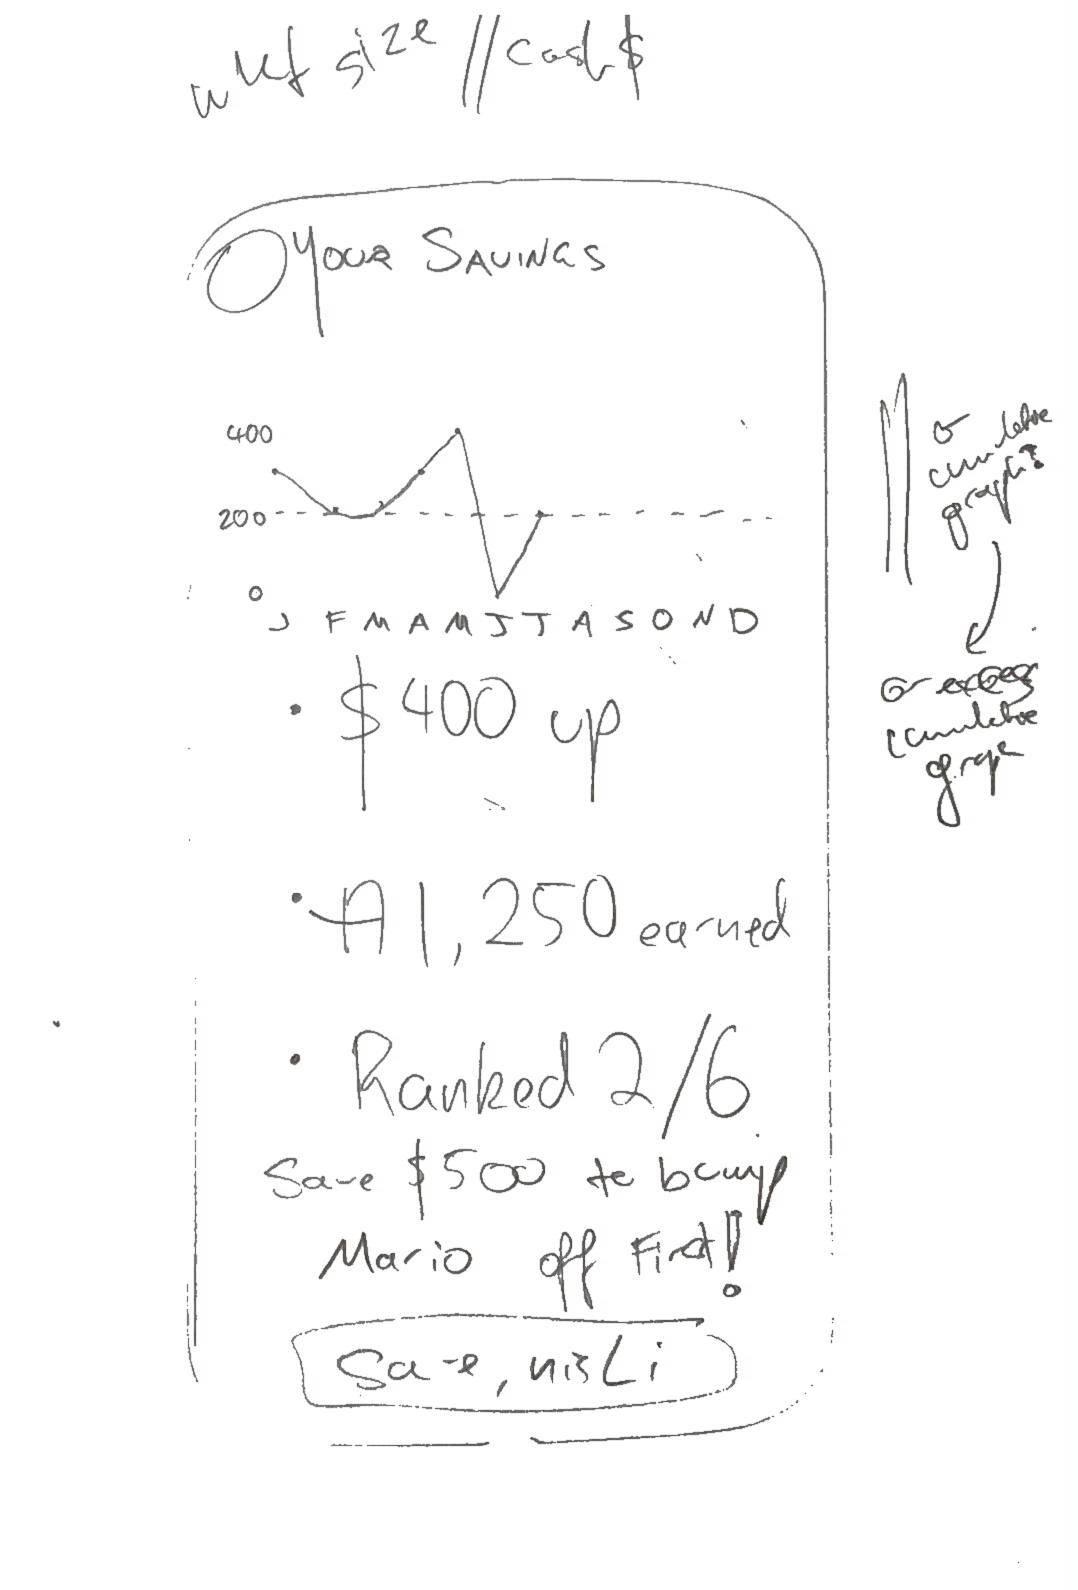 size // cash $
YOUR SAVINGS
400
200
0
J F M A M J J A S O N D
• $400 up
• A1,250 earned
• Ranked 2/6
Save $500 to bump
Mario off First!
Save,
or
cumulative
graph?
or
cumulative
graph